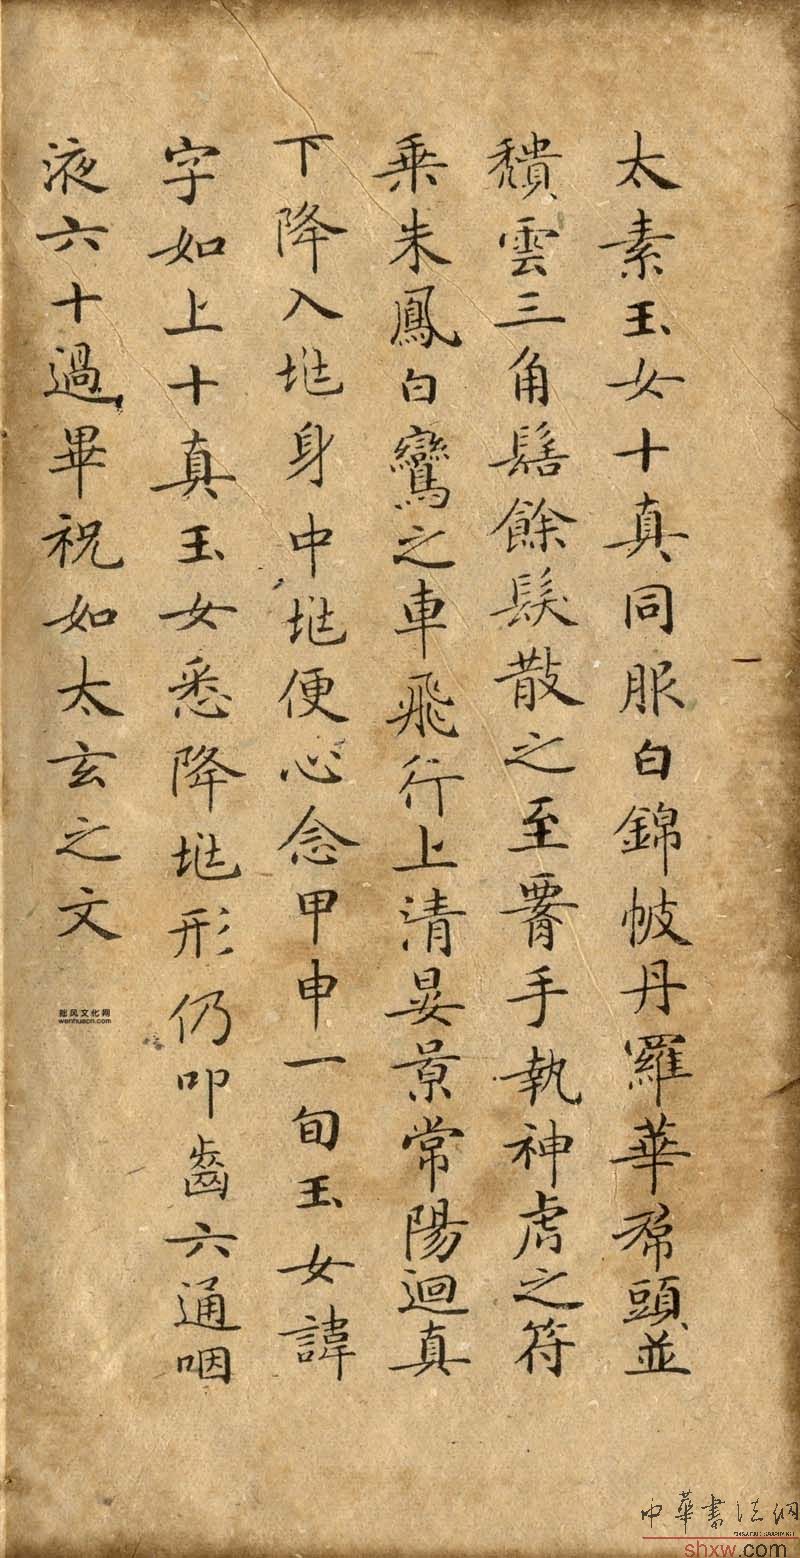 太素玉女十真同服白錦帔丹羅華帬頭並
頹雲三角髻餘髮散之至腰手執神虎之符
乘朱鳳白鸞之車飛行上清晏景常陽迴真
下降入某身中某便心念甲申一旬玉女諱
字如上十真玉女悉降某形仍叩齒六通咽
液六十過畢祝如太玄之文
风文化网
wenhuacn.com
中華書法網
shxw.com